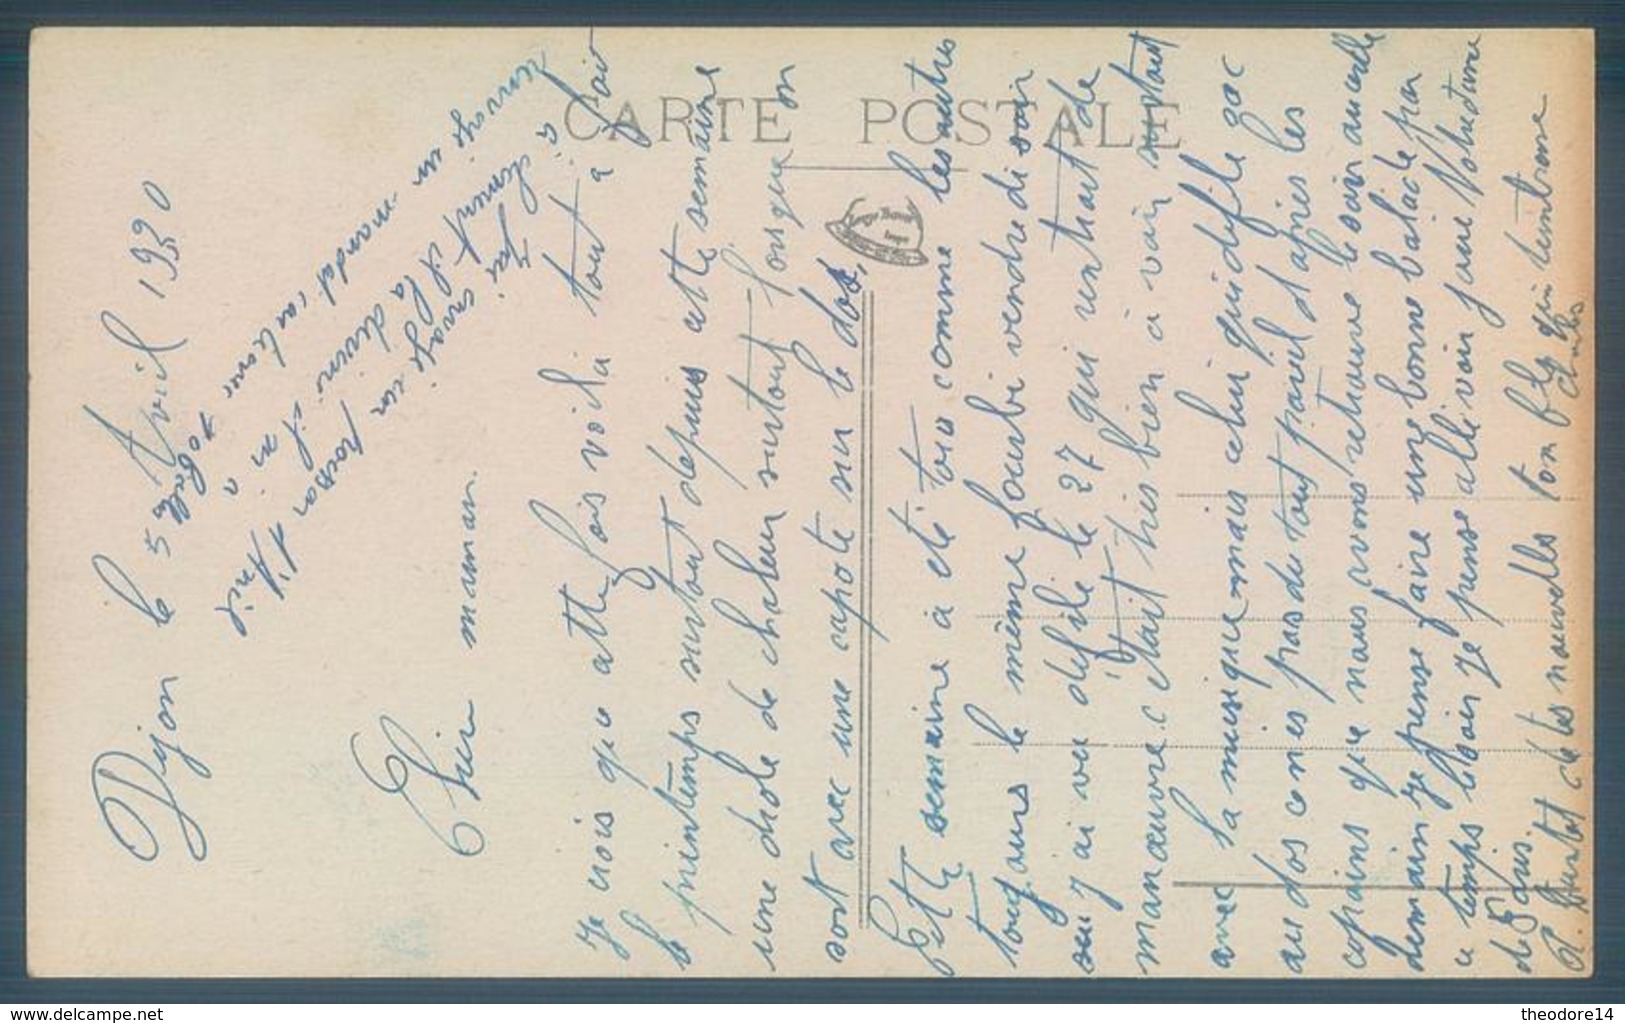 CARTE POSTALE
Dijon le 5 Avril 1930
Cher maman.
Je crois que cette fois voila tout a fait
le printemps surtout depuis cette semaine
une drole de chaleur surtout lorsque on
sort avec une capote sur le dos.
Cette semaine à eté tou comme les autres
toujours le même fourbi vendredi soir
j'ai vu defile le 27 qui rentrait de
manœuvre c'était tres bien à voir surtout
avec la musique mais celui qui defile sac
au dos ces pas du tout pareil d'apres les
copains que nous avons retrouve le soir au
demain je pense faire une bonne balade par
ce temps je pense allé voir
de Dijon.
A bientot de tes nouvelles ton fils qui
J'ai envoyé un poisson d'Avril
à
envoyé un mandat
www.delcampe.net
theodore14